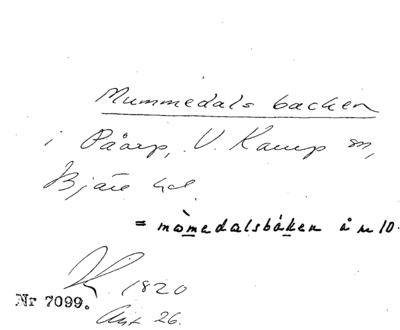 Mummedals backen
i Påarp, V. Karup sn,
Bjäre hd.
= mòmedalsbáken å n 10.
1820
Nr 7099.
Akt 26.